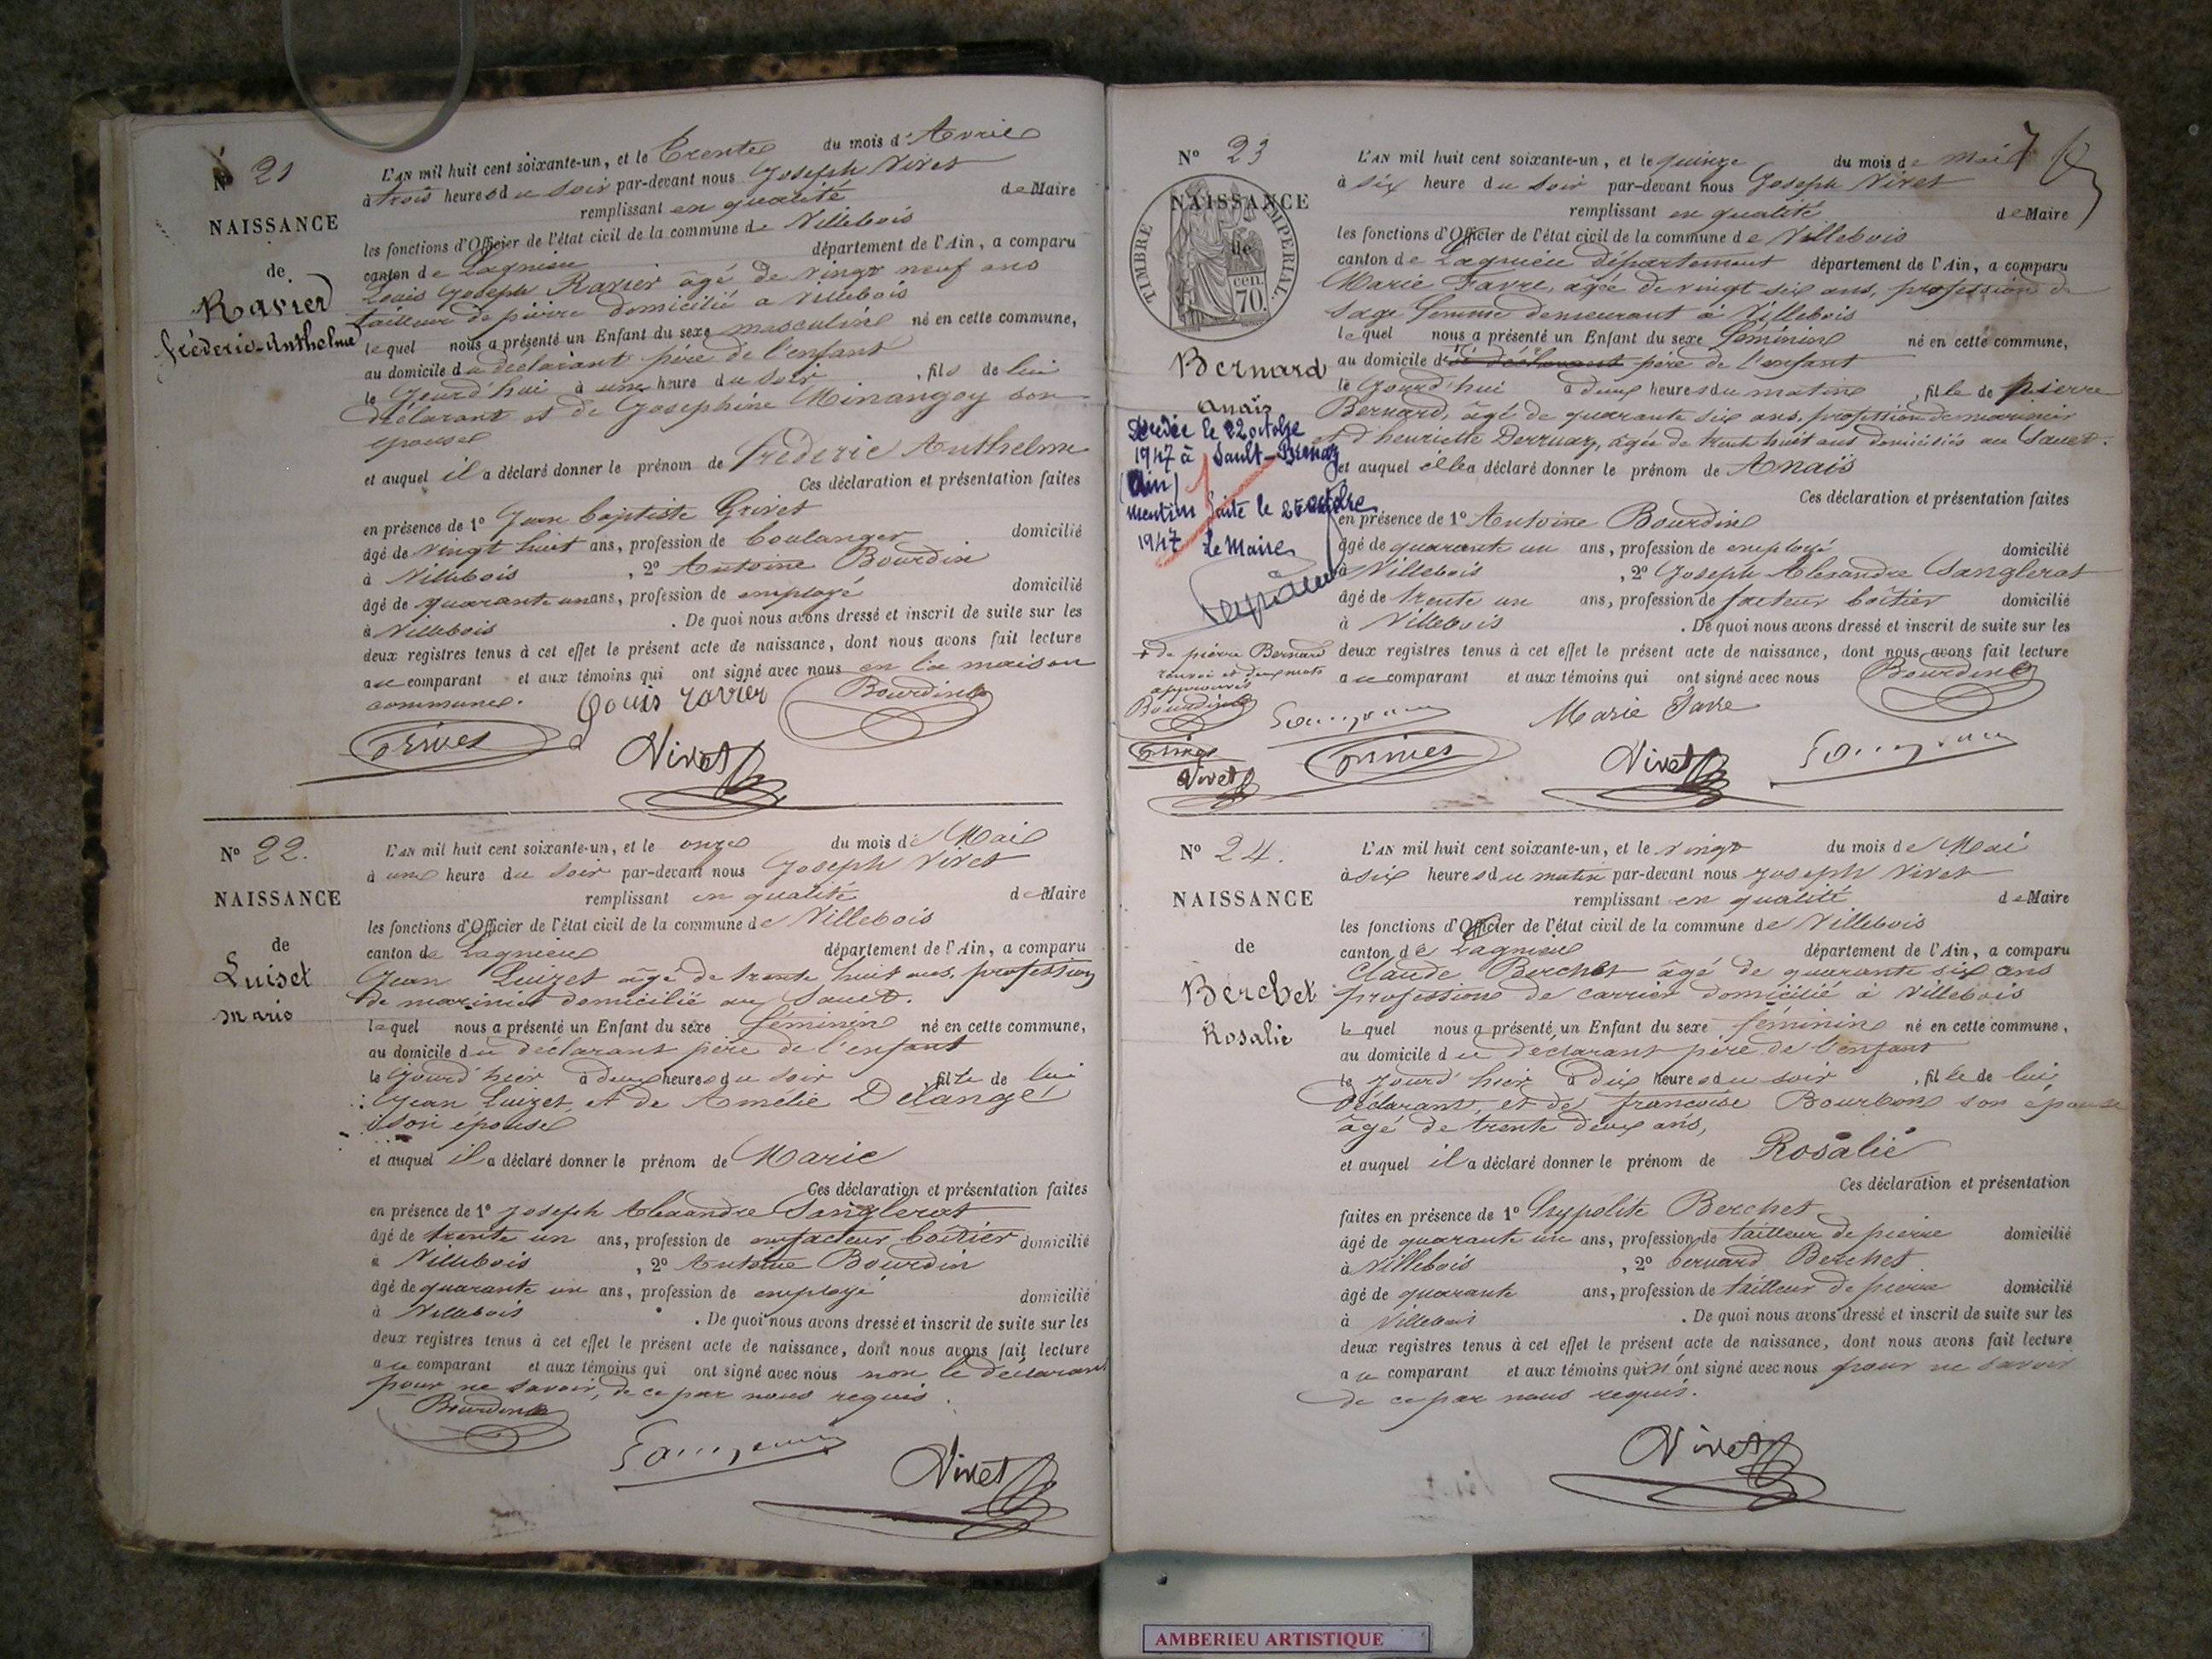 N° 21
NAISSANCE
de
Ravier
frédéric-Anthelme
L'AN mil huit cent soixante-un, et le Trente du mois d'Avril
à trois heures du soir par-devant nous Joseph Vivet
remplissant en qualité de Maire
les fonctions d'Officier de l'état civil de la commune de Villebois
canton de Lagnieu département de l'Ain, a comparu
Louis Joseph Ravier âgé de vingt neuf ans
tailleur de pierre domicilié a Villebois
lequel nous a présenté un Enfant du sexe masculin né en cette commune,
au domicile du déclarant père de l'enfant
le Jourd'hui à une heure du soir, fils de lui
déclarant et de Josephine Minangoy son
épouse
et auquel il a déclaré donner le prénom de frédéric Anthelme
Ces déclaration et présentation faites
en présence de 1° Jean baptiste Grivet
âgé de vingt huit ans, profession de boulanger domicilié
à Villebois, 2° Antoine Bourdin
âgé de quarante un ans, profession de employé domicilié
à Villebois. De quoi nous avons dressé et inscrit de suite sur les
deux registres tenus à cet effet le présent acte de naissance, dont nous avons fait lecture
au comparant et aux témoins qui ont signé avec nous en la maison
commune. Louis ravier Bourdin
Grivet
Vivet
N° 22.
NAISSANCE
de
Luiset
marie
L'AN mil huit cent soixante-un, et le onze du mois de Mai
à une heure du soir par-devant nous Joseph Vivet
remplissant en qualité de Maire
les fonctions d'Officier de l'état civil de la commune de Villebois
canton de Lagnieu département de l'Ain, a comparu
Jean Luizet âgé de trente huit ans, profession
de marinier domicilié au Sault.
lequel nous a présenté un Enfant du sexe féminin né en cette commune,
au domicile du déclarant père de l'enfant
le Jourd'hier à deux heures du soir, fille de lui
Jean Luizet, et de Amélie Délangé
son épouse
et auquel il a déclaré donner le prénom de Marie
Ces déclaration et présentation faites
en présence de 1° Joseph Alexandre Sanglerat
âgé de trente un ans, profession de facteur boîtier domicilié
à Villebois, 2° Antoine Bourdin
âgé de quarante un ans, profession de employé domicilié
à Villebois. De quoi nous avons dressé et inscrit de suite sur les
deux registres tenus à cet effet le présent acte de naissance, dont nous avons fait lecture
au comparant et aux témoins qui ont signé avec nous non le déclarant
pour ne savoir, de ce par nous requis.
Bourdin
Vivet
7
N° 23
NAISSANCE
de
TIMBRE IMPERIAL
70. cen
Bernard
Anaïs
Décédée le 22 octobre
1947 à Sault-Brenaz
(Ain)
mention faite le 25 octobre
1947 Le Maire
+ de pierre Bernard
renvoi et deux mots
approuvés
Bourdin
Grivet
Vivet
L'AN mil huit cent soixante-un, et le quinze du mois de Mai
à six heure du soir par-devant nous Joseph Vivet
remplissant en qualité de Maire
les fonctions d'Officier de l'état civil de la commune de Villebois
canton de Lagnieu département département de l'Ain, a comparu
Marie Favre, âgée de vingt six ans, profession de
Sage femme demeurant à Villebois
lequel nous a présenté un Enfant du sexe féminin né en cette commune,
au domicile du déclarant père de l'enfant
le Jourd'hui à deux heures du matin, fille de pierre
Bernard, âgé de quarante six ans, profession de marinier
et d'henriette Derruaz, agée de trente huit ans domiciliés au Sault.
et auquel elle a déclaré donner le prénom de Anaïs
Ces déclaration et présentation faites
en présence de 1° Antoine Bourdin
âgé de quarante un ans, profession de employé domicilié
à Villebois, 2° Joseph Alexandre Sanglerat
âgé de trente un ans, profession de facteur boîtier domicilié
à Villebois. De quoi nous avons dressé et inscrit de suite sur les
deux registres tenus à cet effet le présent acte de naissance, dont nous avons fait lecture
au comparant et aux témoins qui ont signé avec nous Bourdin
Marie Favre
Grivet
Vivet
N° 24.
NAISSANCE
de
Berchet
Rosalie
L'AN mil huit cent soixante-un, et le vingt du mois de Mai
à six heures du matin par-devant nous Joseph Vivet
remplissant en qualité de Maire
les fonctions d'Officier de l'état civil de la commune de Villebois
canton de Lagnieu département de l'Ain, a comparu
Claude Berchet âgé de quarante six ans
profession de carrier domicilié à Villebois
lequel nous a présenté un Enfant du sexe féminin né en cette commune,
au domicile du déclarant père de l'enfant
le jourd'hier à dix heures du soir, fille de lui
déclarant, et de françoise Bourbon son épouse
âgé de trente deux ans,
et auquel il a déclaré donner le prénom de Rosalie
Ces déclaration et présentation
faites en présence de 1° hypolite Berchet
âgé de quarante un ans, profession de tailleur de pierre domicilié
à Villebois, 2° bernard Berchet
âgé de quarante ans, profession de tailleur de pierre domicilié
à Villebois. De quoi nous avons dressé et inscrit de suite sur les
deux registres tenus à cet effet le présent acte de naissance, dont nous avons fait lecture
au comparant et aux témoins qui n'ont signé avec nous pour ne savoir
de ce par nous requis.
Vivet
AMBERIEU ARTISTIQUE